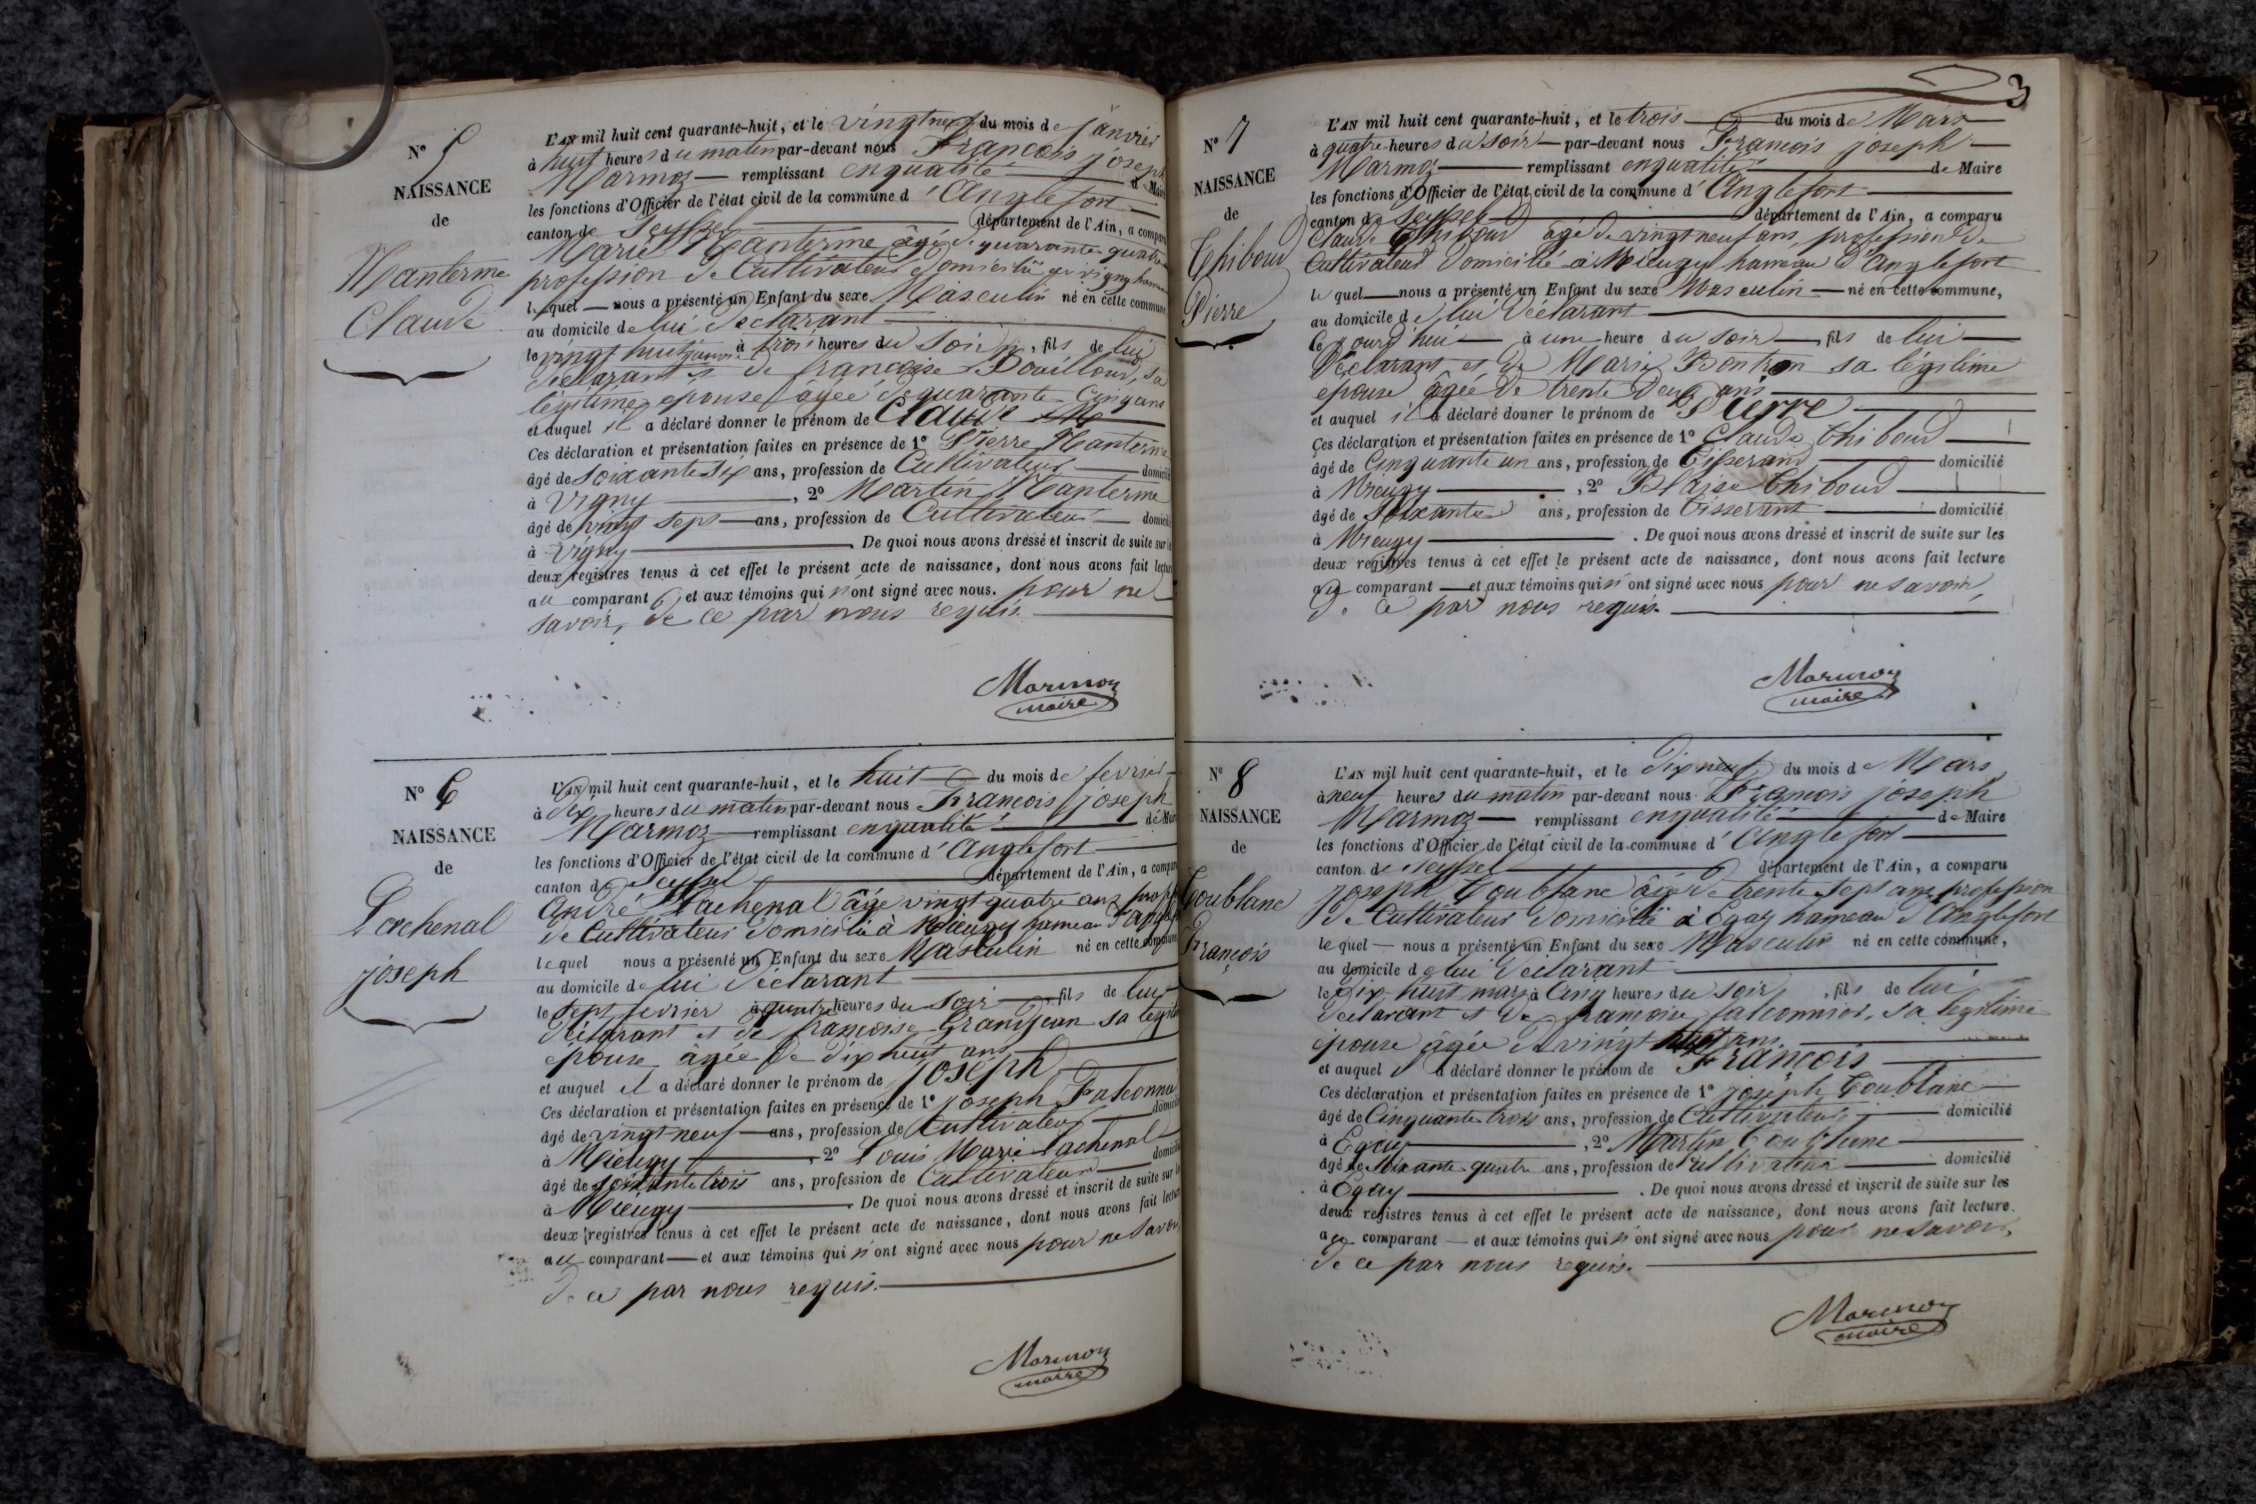 N° 5
NAISSANCE
de
Manterme
Claude
L'AN mil huit cent quarante-huit, et le vingt neuf du mois de janvier
à huit heures du matin par-devant nous François joseph
Marmoz remplissant enqualité de Maire
les fonctions d'Officier de l'état civil de la commune d'Anglefort
canton de Seyssel département de l'Ain, a comparu
Marie Manterme âgé de quarante quatre
profession de Cultivateur domicilié à vigny hameau
lequel nous a présenté un Enfant du sexe Masculin né en cette commune
au domicile de lui Déclarant
le vingt huit janvr. à trois heures du Soir, fils de lui
déclarant et de françoise Bouilloud, sa
légitime épouse âgée de quarante Cinq ans
et auquel il a déclaré donner le prénom de Claude
Ces déclaration et présentation faites en présence de 1° Pierre Manterme
âgé de soixante six ans, profession de Cultivateur domicilié
à Vigny, 2° Martin Manterme
âgé de vingt sept ans, profession de Cultivateur domicilié
à Vigny. De quoi nous avons dressé et inscrit de suite sur les
deux registres tenus à cet effet le présent acte de naissance, dont nous avons fait lecture
au comparant et aux témoins qui n'ont signé avec nous. pour ne
savoir, de ce par nous requis
Marmoz
maire
N° 6
NAISSANCE
de
Lachenal
joseph
L'AN mil huit cent quarante-huit, et le huit du mois de fevrier
à dix heures du matin par-devant nous François joseph
Marmoz remplissant enqualité de Maire
les fonctions d'Officier de l'état civil de la commune d'Anglefort
canton de Seyssel département de l'Ain, a comparu
André Lachenal âgé vingt quatre ans prof
de Cultivateur domicilié à Mieugy hameau d'Anglef
lequel nous a présenté un Enfant du sexe Masculin né en cette commune
au domicile de lui Déclarant
le sept fevrier à quatre heures du Soir, fils de lui
déclarant et de françoise Grandjean sa légiti
épouse âgée de dix huit ans
et auquel il a déclaré donner le prénom de joseph
Ces déclaration et présentation faites en présence de 1° joseph Falconnier
âgé de vingt neuf ans, profession de Cultivateur domicilié
à Mieugy, 2° Louis Marie Lachenal
âgé de soixante trois ans, profession de Cultivateur domicilié
à Mieugy. De quoi nous avons dressé et inscrit de suite sur les
deux registres tenus à cet effet le présent acte de naissance, dont nous avons fait lecture
au comparant et aux témoins qui n'ont signé avec nous pour ne savoir
de ce par nous requis.
Marmoz
maire
3
N° 7
NAISSANCE
de
Thiboud
Pierre
L'AN mil huit cent quarante-huit, et le trois du mois de Mars
à quatre heures du soir par-devant nous François joseph
Marmoz remplissant enqualité de Maire
les fonctions d'Officier de l'état civil de la commune d'Anglefort
canton de Seyssel département de l'Ain, a comparu
Claude Thiboud âgé de vingt neuf ans, profession de
Cultivateur domicilié à Mieugy hameau d'Anglefort
lequel nous a présenté un Enfant du sexe Masculin né en cette commune,
au domicile de lui Déclarant
Ce jourd'hui à une heure du soir, fils de lui
Déclarant et de Marie Bontron sa légitime
épouse âgée de trente deux ans
et auquel il a déclaré donner le prénom de Pierre
Ces déclaration et présentation faites en présence de 1° Claude Thiboud
âgé de Cinquante un ans, profession de Tisserand domicilié
à Mieugy, 2° Blaise Thiboud
âgé de Soixante ans, profession de tisserant domicilié
à Mieugy. De quoi nous avons dressé et inscrit de suite sur les
deux registres tenus à cet effet le présent acte de naissance, dont nous avons fait lecture
au comparant et aux témoins qui n'ont signé avec nous pour ne savoir,
de ce par nous requis.
Marmoz
maire
N° 8
NAISSANCE
de
Coublanc
François
L'AN mil huit cent quarante-huit, et le Dix neuf du mois de Mars
à neuf heures du matin par-devant nous François joseph
Marmoz remplissant enqualité de Maire
les fonctions d'Officier de l'état civil de la commune d'Anglefort
canton de Seyssel département de l'Ain, a comparu
joseph Coublanc âgé de trente sept ans profession
de Cultivateur domicilié à Egay hameau d'Anglefort
lequel nous a présenté un Enfant du sexe Masculin né en cette commune,
au domicile de lui Déclarant
le dix huit mars à Cinq heures du soir, fils de lui
déclarant et de françoise falconnier, sa légitime
épouse âgée de vingt huit ans
et auquel il a déclaré donner le prénom de François
Ces déclaration et présentation faites en présence de 1° joseph Coublanc
âgé de Cinquante trois ans, profession de Cultivateur domicilié
à Egay, 2° Martin Coublanc
âgé de soixante quatre ans, profession de Cultivateur domicilié
à Egay. De quoi nous avons dressé et inscrit de suite sur les
deux registres tenus à cet effet le présent acte de naissance, dont nous avons fait lecture.
au comparant et aux témoins qui n'ont signé avec nous pour ne savoir,
de ce par nous requis.
Marmoz
maire